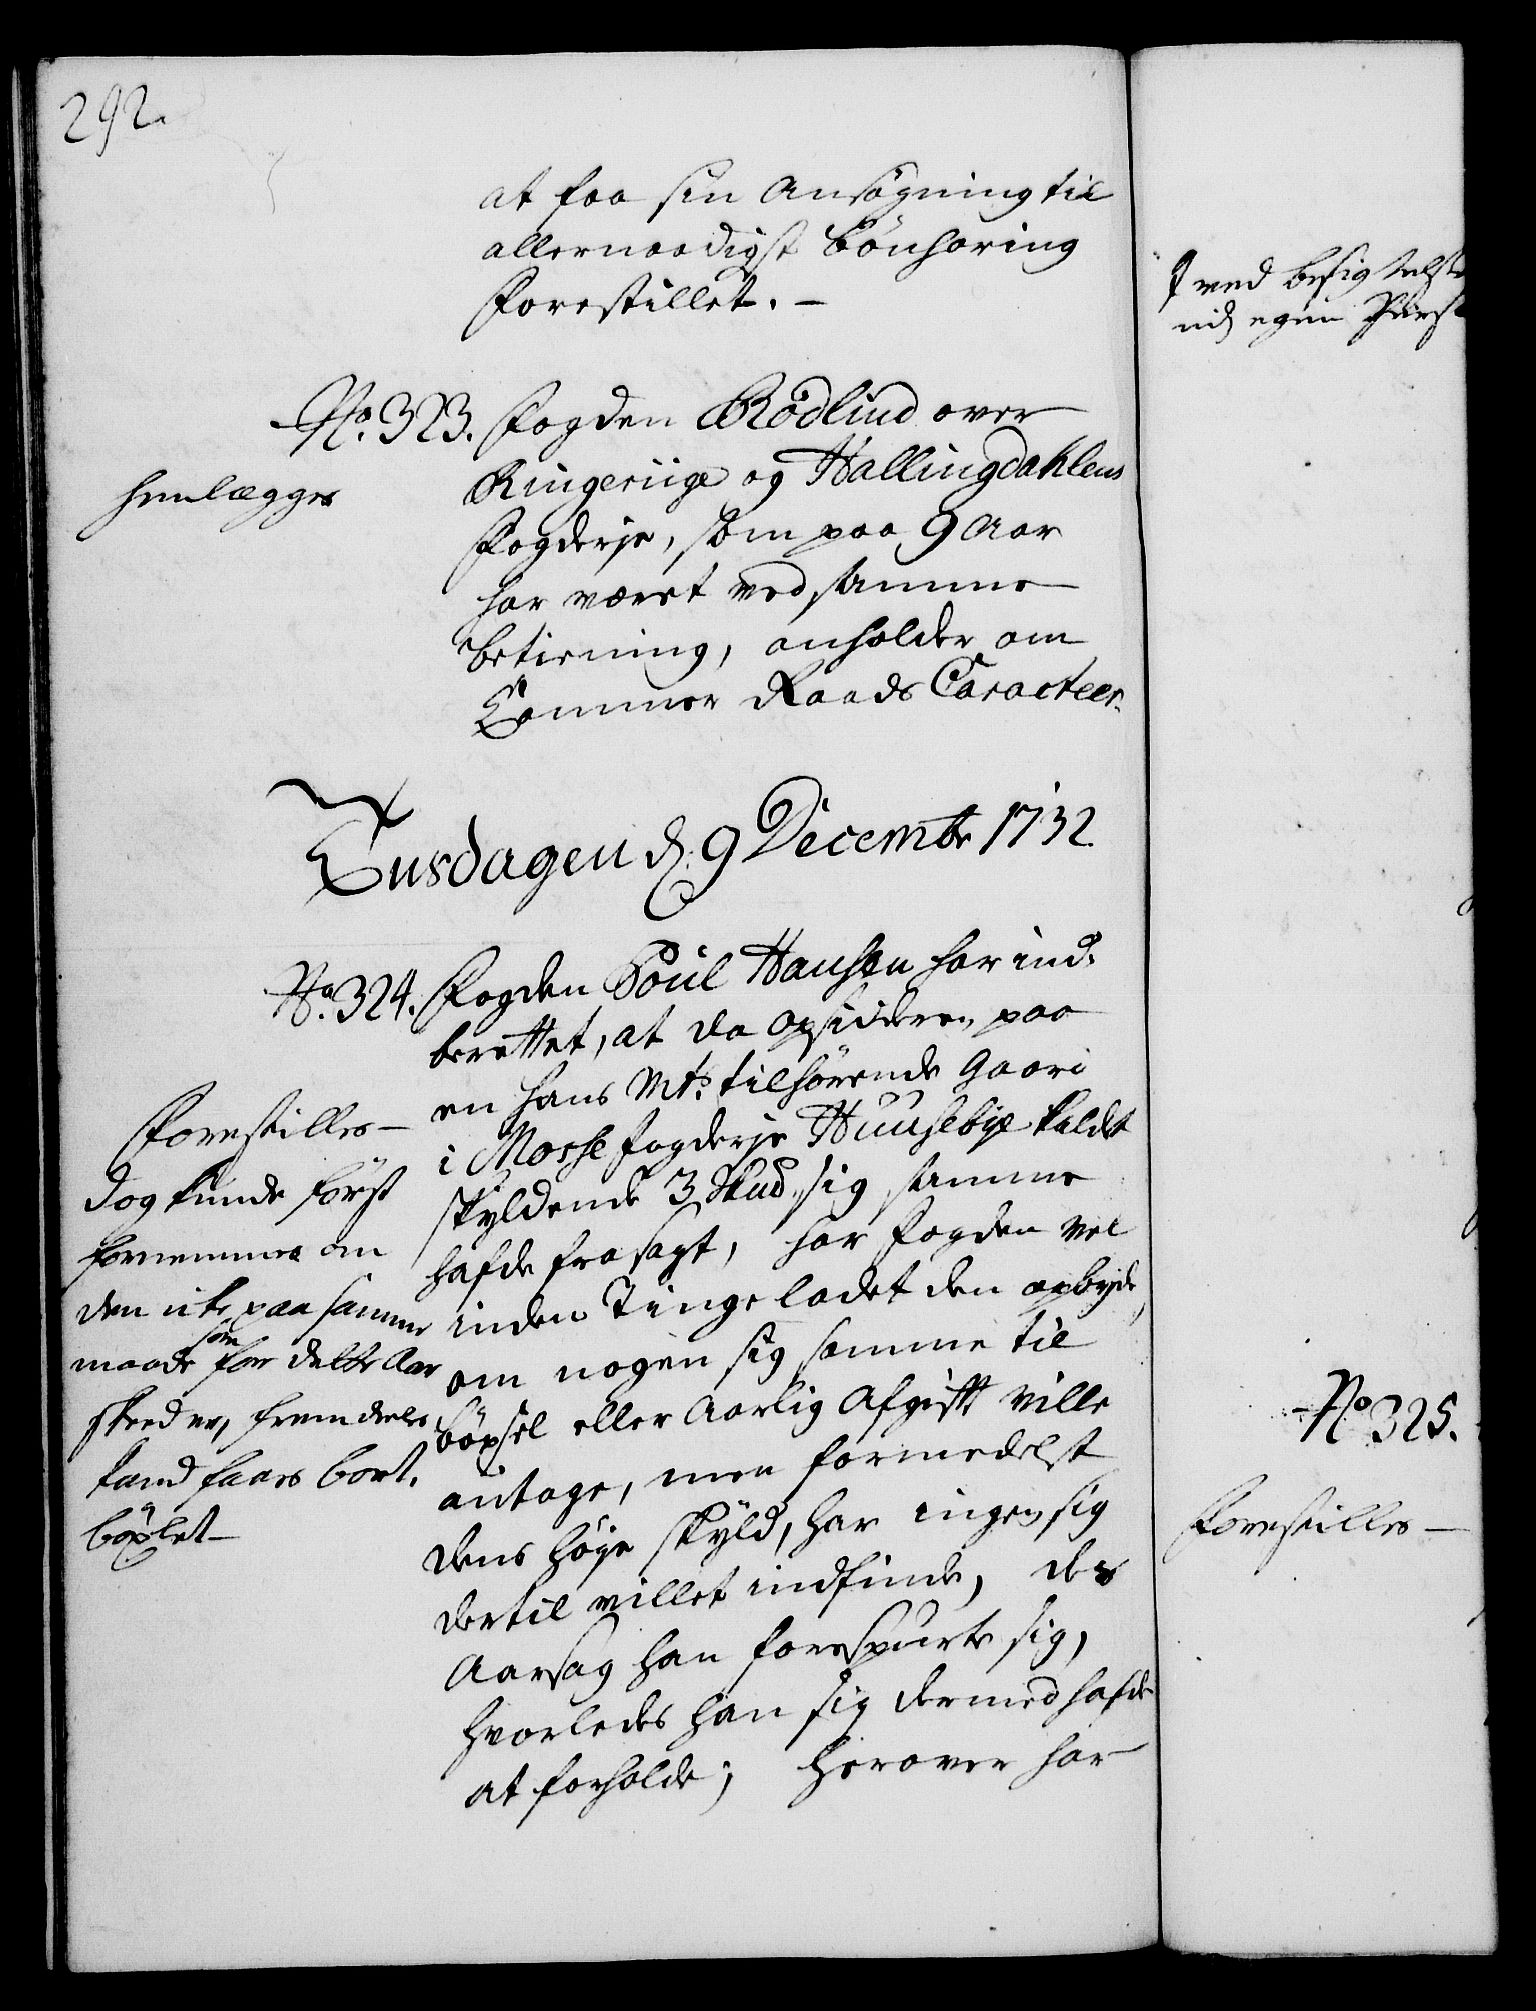 292.
at faa sin Ansøgning til
allernaadigst bönhöring
Forestillet. –
No. 323. Fogden Rödlind over
henlægges
Ringeriige og Hallingdahlens
Fogderje, som paa 9 Aar
har været ved samme
betiening, anholder om
Cammer Raads Caracteer.
Tiisdagen d. 9 Decembr 1732.
No. 324. Fogden Poul Hansen har ind-
berettet, at da opsidderen paa
en Hans Mts. tilhörende Gaard
i Mosse fogderje Huusebye kaldet
skyldende 3 Skud, sig samme
hafde frasagt, har Fogden vel
inden Tinge ladet den opbyde,
om nogen sig samme til
böxsel eller Aarlig Afgift ville
antage, men formedelst
dens höye skyld, har ingen sig
dertil villet indfinde, des
Aarsag han forespurte sig,
hvorledes han sig dermed hafde
at forholde; herover har
Forestilles –
dog kunde först
fornemmes om
den icke paa samme
maade som for dette Aar
skeed er, fremdeeles
kand faaes bort-
böxlet –
ved
egen
No 325.
Forestilles –